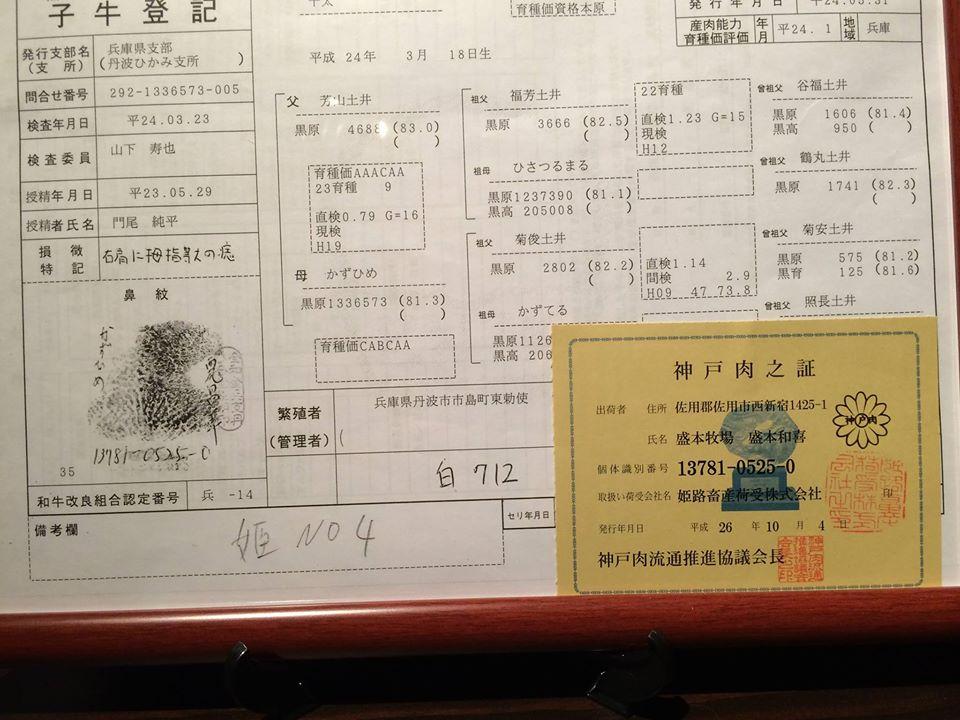 子牛登記
育種価資格本原
発行年月日
平24.05.31
産肉能力 年
育種価評価 月
平24. 1
地域
兵庫
発行支部名
(支所)
兵庫県支部
(丹波ひかみ支所)
平成 24年 3月 18日生
問合せ番号
292-1336573-005
検査年月日
平24.03.23
検査委員
山下 寿也
授精年月日
平23.05.29
授精者氏名
門尾 純平
損徴
特記
右肩に拇指大の痣
鼻紋
かずひめ
13781-0525-0
35
和牛改良組合認定番号
兵 -14
備考欄
姫 NO 4
父 芳山土井
黒原 4688 (83.0)
( )
育種価AAACAA
23育種 9
直検0.79 G=16
現検
H19
母 かずひめ
黒原1336573 (81.3)
( )
育種価CABCAA
祖父 福芳土井
黒原 3666 (82.5)
( )
22育種
直検1.23 G=15
現検
H12
祖母 ひさつるまる
黒原1237390 (81.1)
黒高 205008 ( )
祖父 菊俊土井
黒原 2802 (82.2)
( )
直検1.14
間検 2.9
H09 47 73.8
祖母 かずてる
黒原1126
黒高 206
曾祖父 谷福土井
黒原 1606 (81.4)
黒高 950 ( )
曾祖父 鶴丸土井
黒原 1741 (82.3)
( )
曾祖父 菊安土井
黒原 575 (81.2)
黒育 125 (81.6)
曾祖父 照長土井
繁殖者
(管理者)
兵庫県丹波市市島町東勅使
(
白 712
セリ年月日
神戸肉之証
出荷者 住所 佐用郡佐用市西新宿1425-1
氏名 盛本牧場 盛本和喜
神戸肉
個体識別番号 13781-0525-0
取扱い荷受会社名 姫路畜産荷受株式会社
印
発行年月日 平成 26 年 10 月 4 日
神戸肉流通推進協議会長